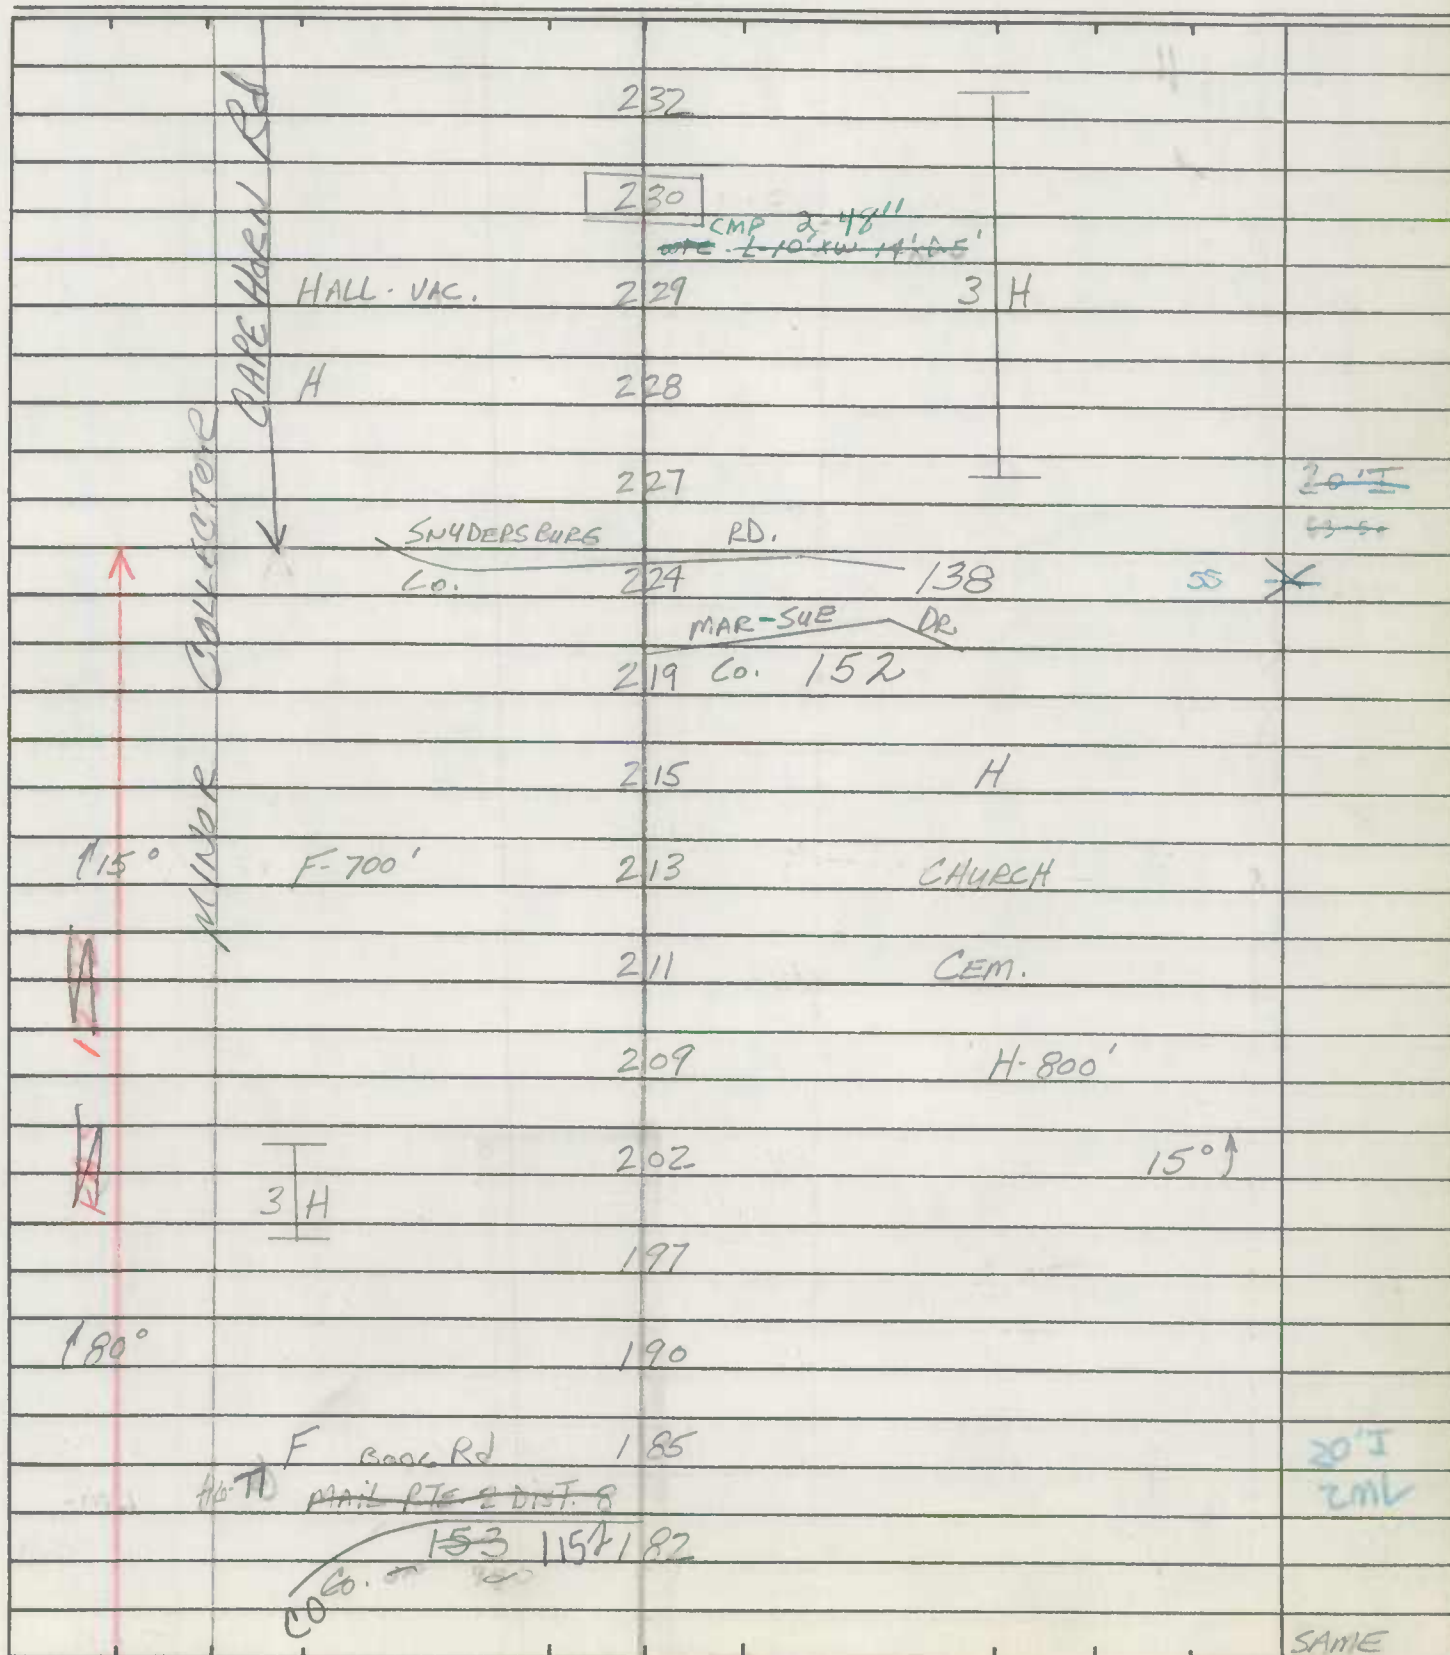 CAPE HORN Rd
MINOR COLLECTOR
232
230
CMP 2-48"
L-10' x W-14' x D-5'
HALL-VAC. 229 3 H
H 228
227 20'I
SNYDERSBURG RD.
Co. 224 138 55
MAR-SUE DR.
219 Co. 152
215 H
15° F-700' 213 CHURCH
211 CEM.
209 H-800'
202 15°
3 H
197
80° 190
F Boog Rd 185 20'I
MAIL RTE. 2 DIST. 8
153 1157 182
Co.
CO
SAME